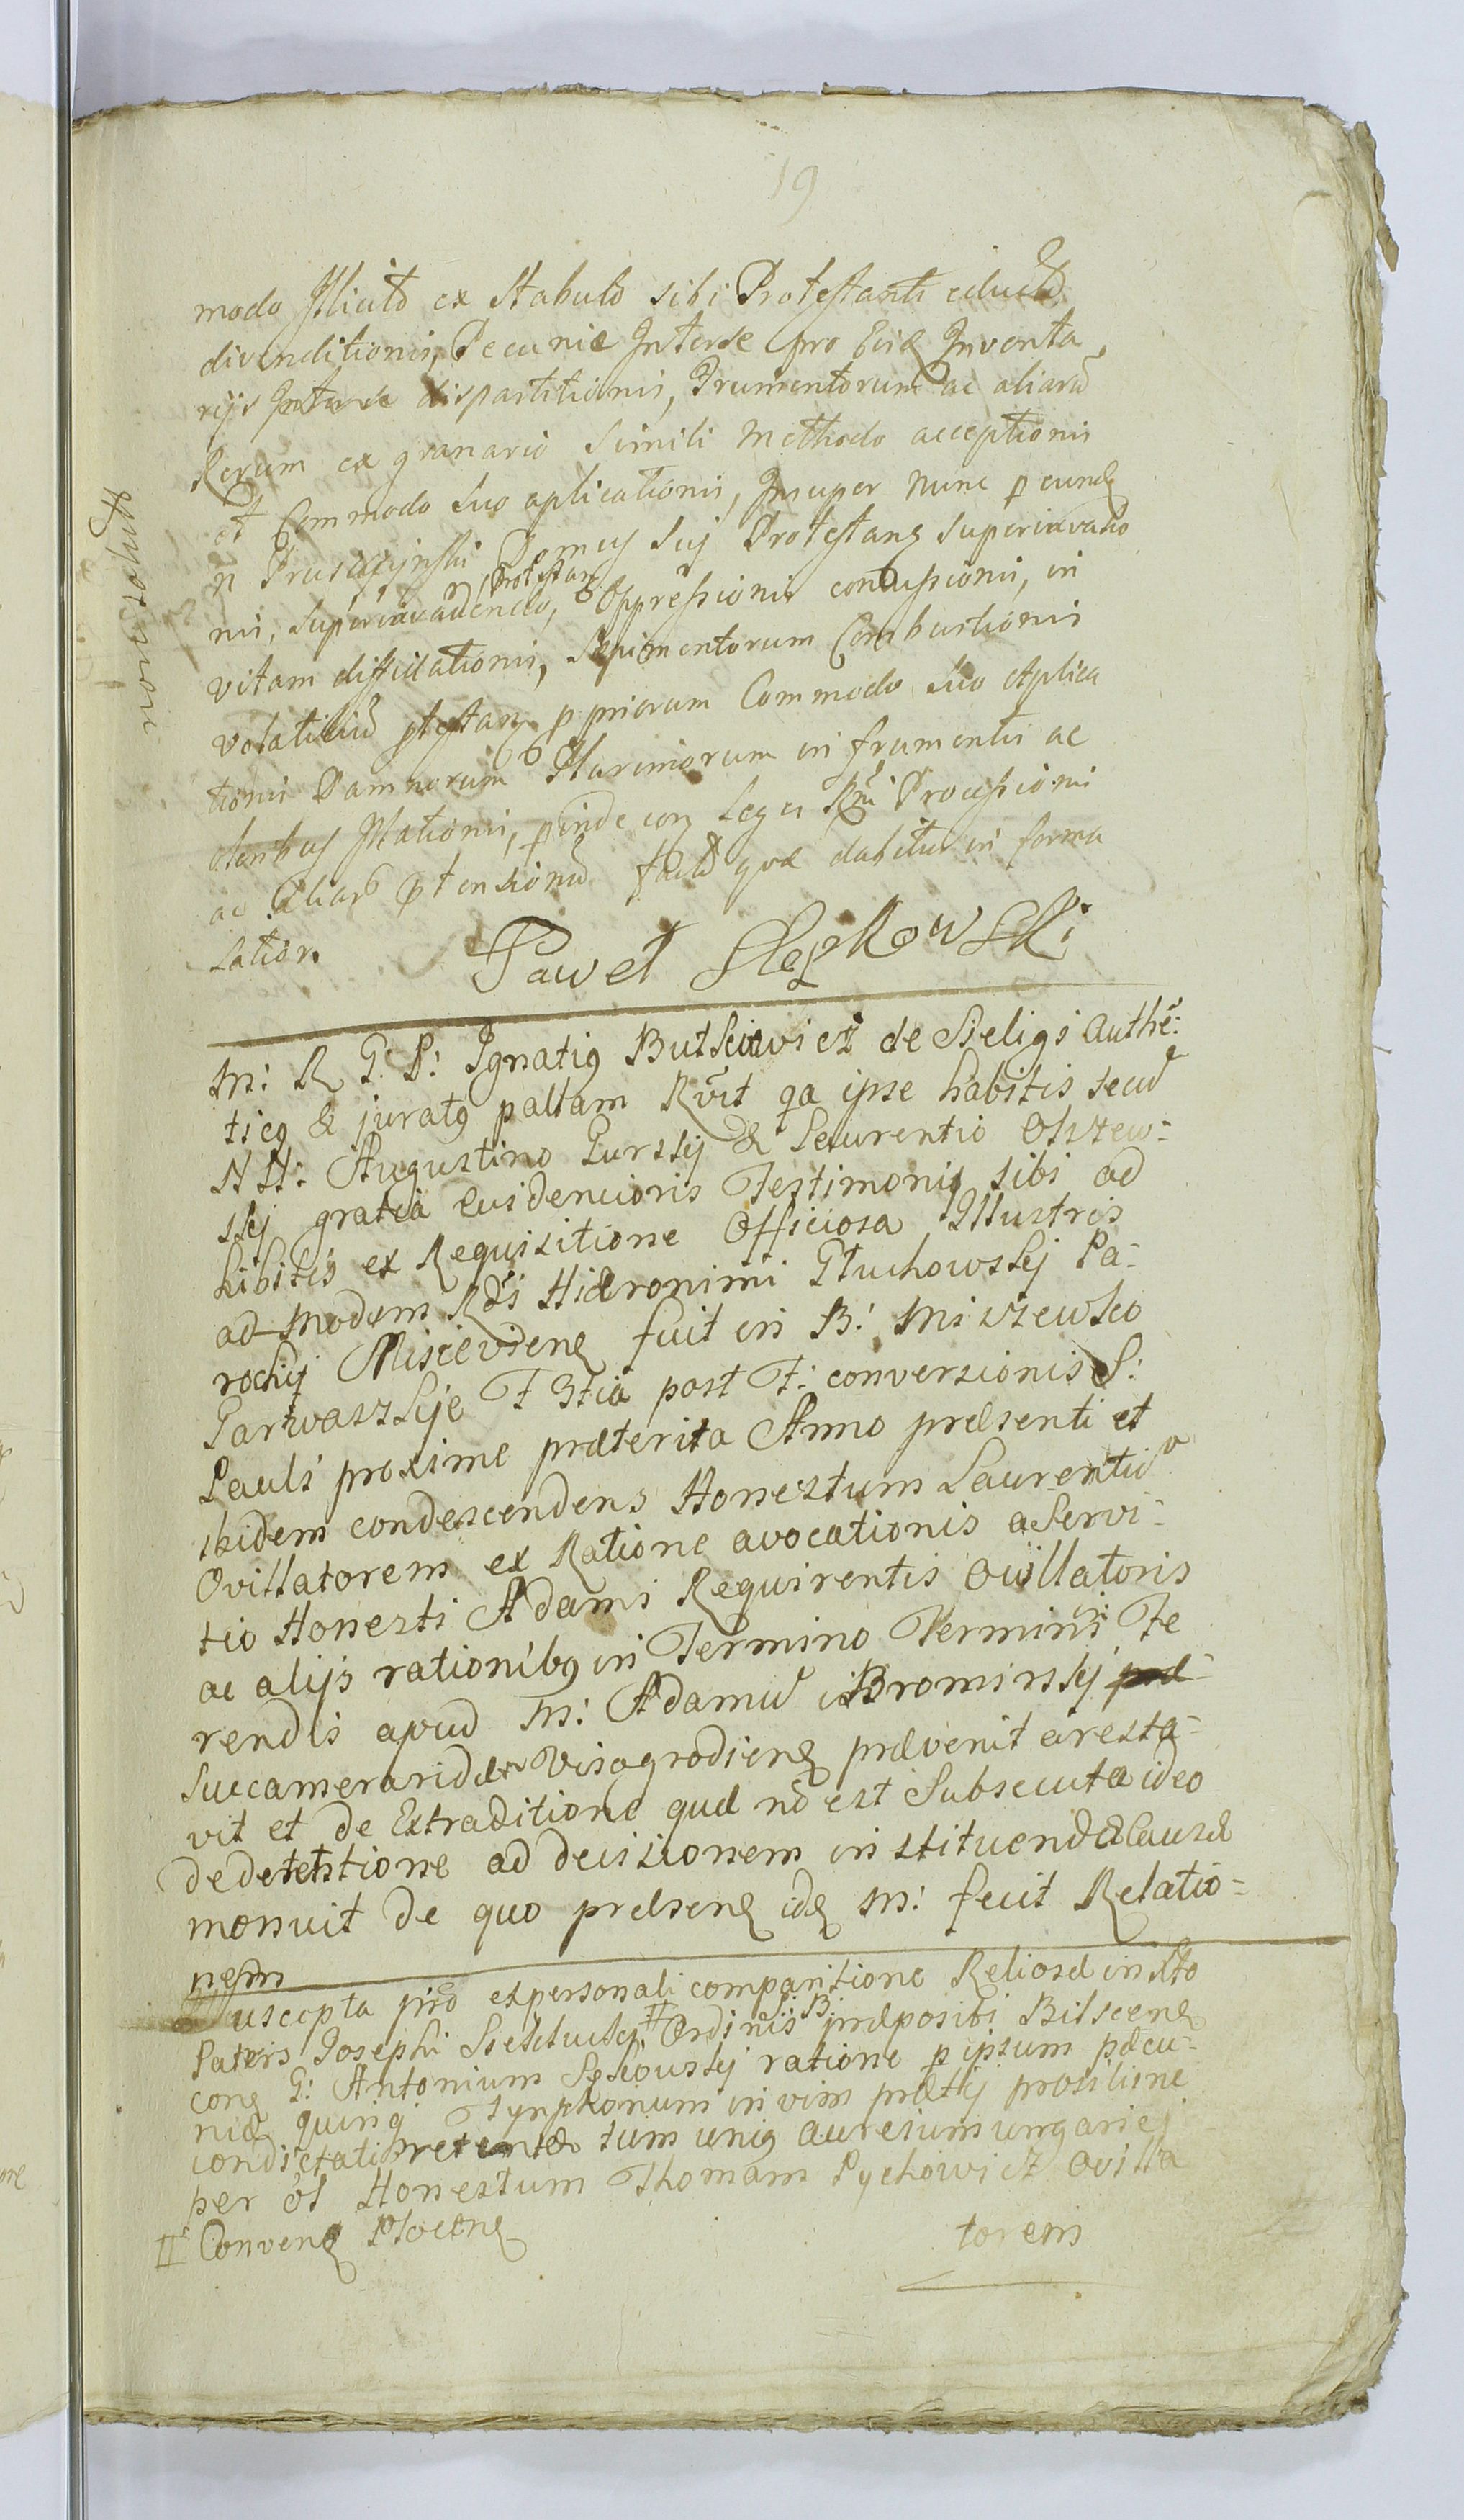 19
modo Illicito ex Stabulo sibi Protestanti educto
divenditionis, Pecuniæ Interse pro Inventa
rijs Interse dispartitionis, Frumentorum ac aliarū
Rerum ex granario simili methodo acceptionis
et Commodo suo aplicationis, Insuper nunc p eund
n Domus suj Protestans superinvasio
nis, superinvadendo, Protestan oppressionis concussionis, in
vitam diffidationis, Sepimentorum Combustionis
volatiliū ptestan p priorum Commodo suo Aplica
tionis Damnorum Plurimorum in frumentis ac
Illationis, pinde con Leges Rni Processionis
ac aliar ptensionū facta quæ dabitur in forma
lation.
Paweł
m: R G. P: Ignatig Butkiewicz de Seligi Authē:
ticg & juratg pallam Rv̄it qa ipse habitis secū
NN: Augustino Gurskj & Laurentio Olszew:
skj gratia Evidencioris Testimonij sibi ad
hibitis ex Requisitione Officiosa Illustris
ad modum Rd̄i Hieronimi Głuchowskj Pa-
rochij fuit in B: Miszewko
Garwaszkje F 3tia post F: conversionis S:
Pauli proxime præterita Anno præsenti et
ibidem condescendens Honestum Laurentiū
Ovillatorem ex Ratione avocationis a Servi-
tio Honesti Adami Requirentis Ovillatoris
ac alijs rationibg in Termino Termini Fe
rendis apud M: Adamū Bromirskj
Succamerarid Visogrodien prævenit aresta-
vit et de Extraditione quæ nō est Subsecuta ideo
de detentione ad decisionem instituendæ Causæ
monuit de quo præsens id M: fecit Relatio-
nem
Suscepta prō ex personali comparitione Reliosi in Xto
Patris Josephi # Ordinis S B: præpositi Bilscen
con G: Antonium ratione p ipsum pæcu-
niæ quinq Tynphonum in vim prætij
condictati retentæ tum unig aureium ungaricj
per ōl Honestum Thomam Pychowicz Ovilla
# Conven Plocen
torem